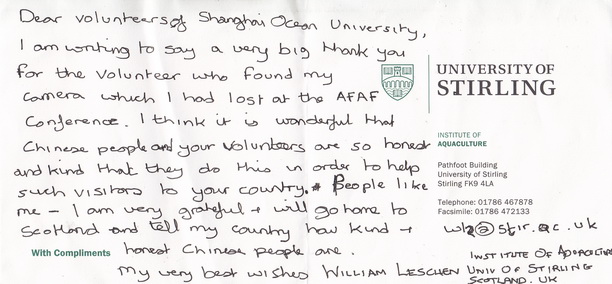 Dear volunteers of Shanghai Ocean University,
I am writing to say a very big thank you
for the volunteer who found my
camera which I had lost at the AFAF
Conference. I think it is wonderful that
Chinese people and your volunteers are so honest
and kind that they do this in order to help
such visitors to your country. People like
me - I am very grateful + will go home to
Scotland and tell my country how kind +
honest Chinese people are.
My very best wishes WILLIAM LESCHEN
UNIVERSITY OF
STIRLING
INSTITUTE OF
AQUACULTURE
Pathfoot Building
University of Stirling
Stirling FK9 4LA
Telephone: 01786 467878
Facsimile: 01786 472133
@stir.ac.uk
INSTITUTE OF
UNIV OF STIRLING
SCOTLAND. UK
With Compliments